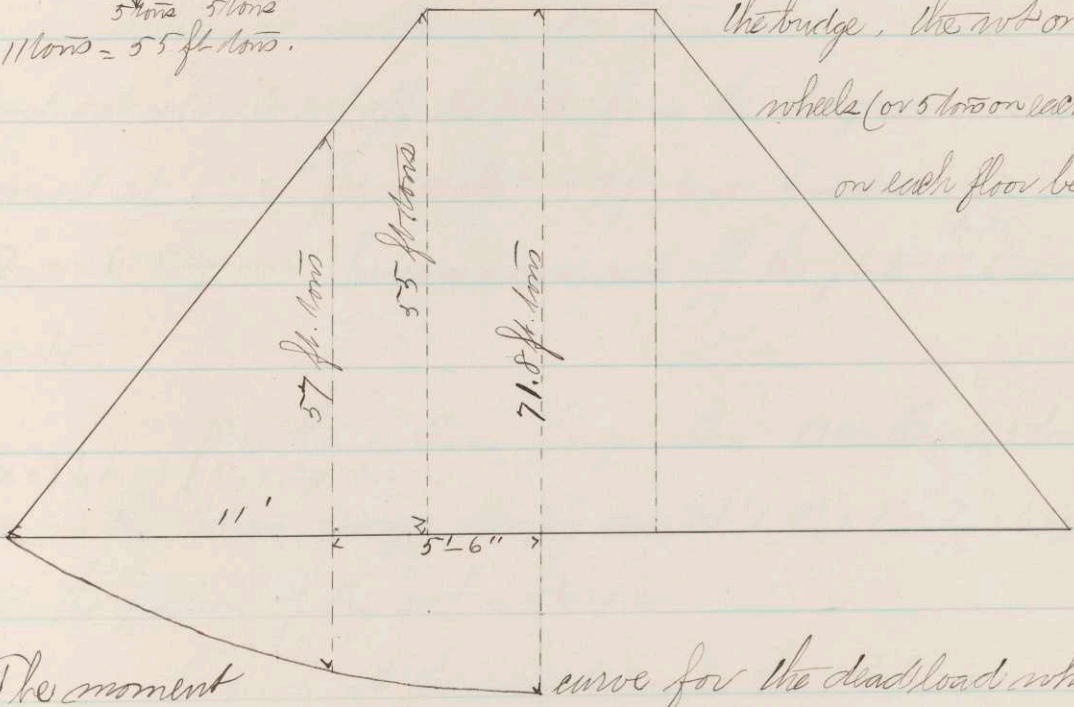 5 tons 5 tons
11 tons = 55 ft tons.
the bridge, the wt on
wheels (or 5 tons on each
on each floor be
57 ft. tons
55 ft. tons
71.8 ft. tons
11'
5'-6"
The moment curve for the dead load wh